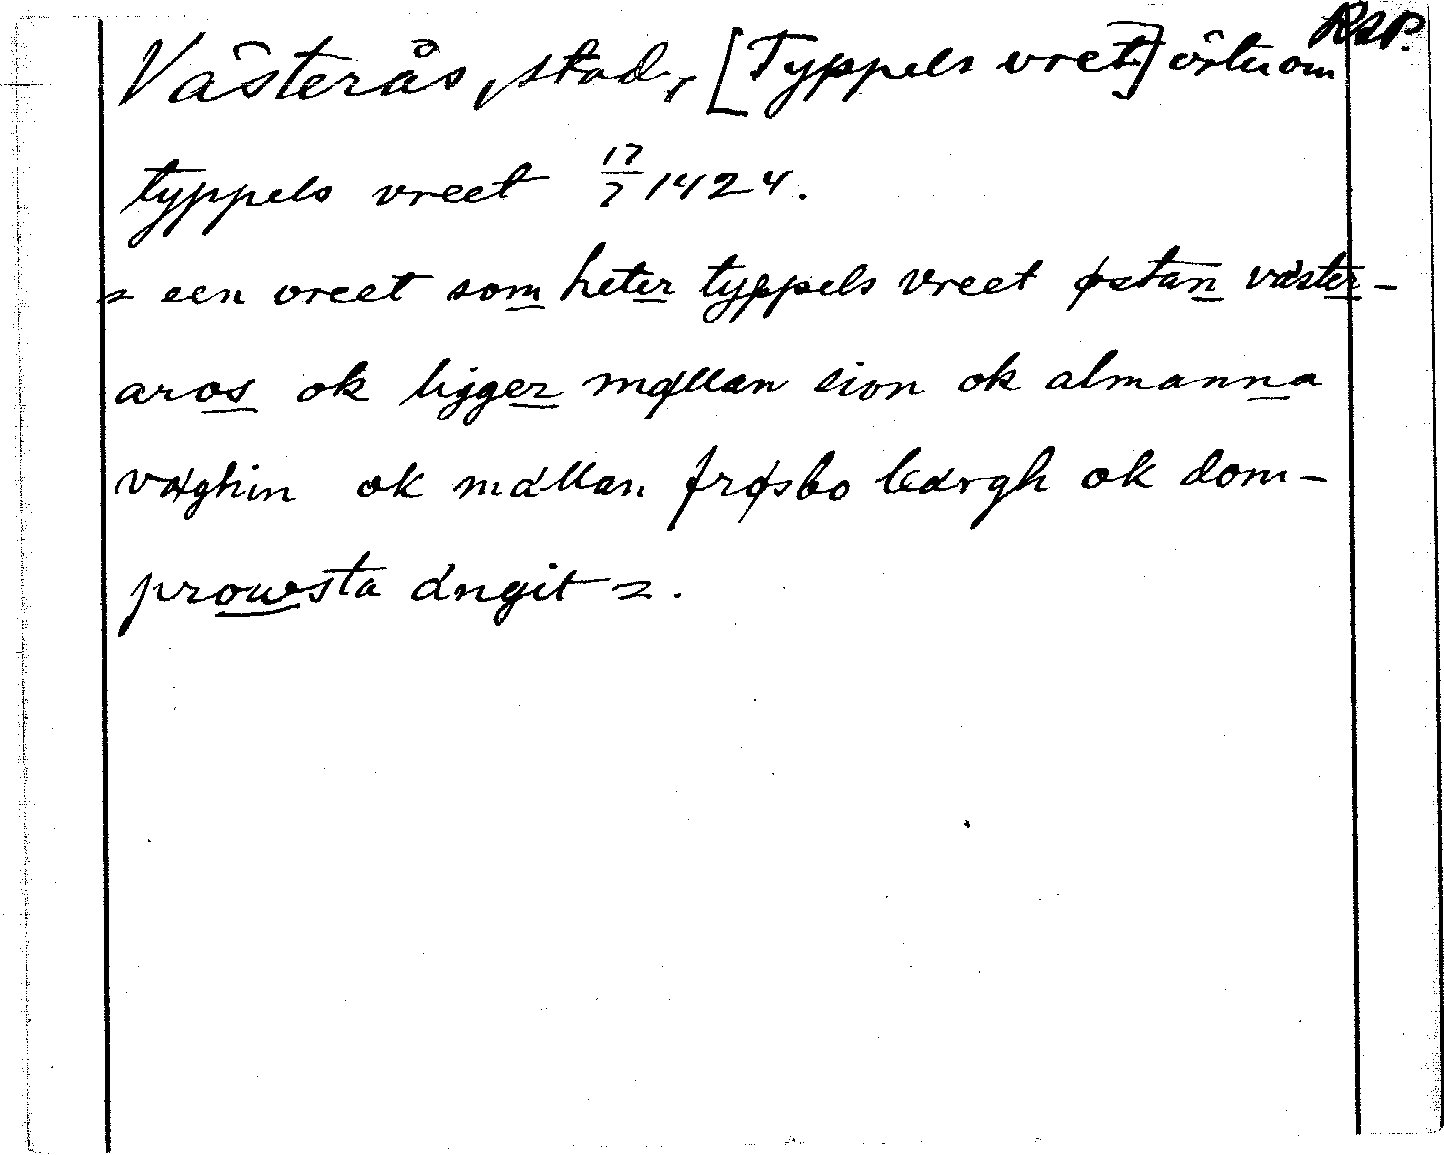 RAP.
Västerås, stad, [Typpels vret] öster om
typpels vreet 17/7 1424.
= een vreet som heter typpels vreet østan väster-
aros ok ligger møllan sion ok almanna
væghin ok mällan frøsbo bärgh ok dom-
prowsta ängit =.